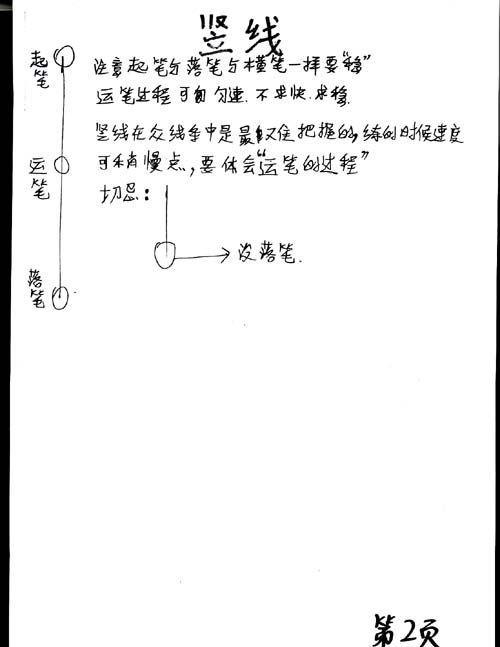 竖线
起笔
注意起笔与落笔与横笔一样要“稳”
运笔过程可自匀速.不求快.求稳.
竖线在众线条中是最难把握的,练的时候速度
运笔
可稍慢点,要体会“运笔的过程”
切忌:
没落笔.
落笔
第2页